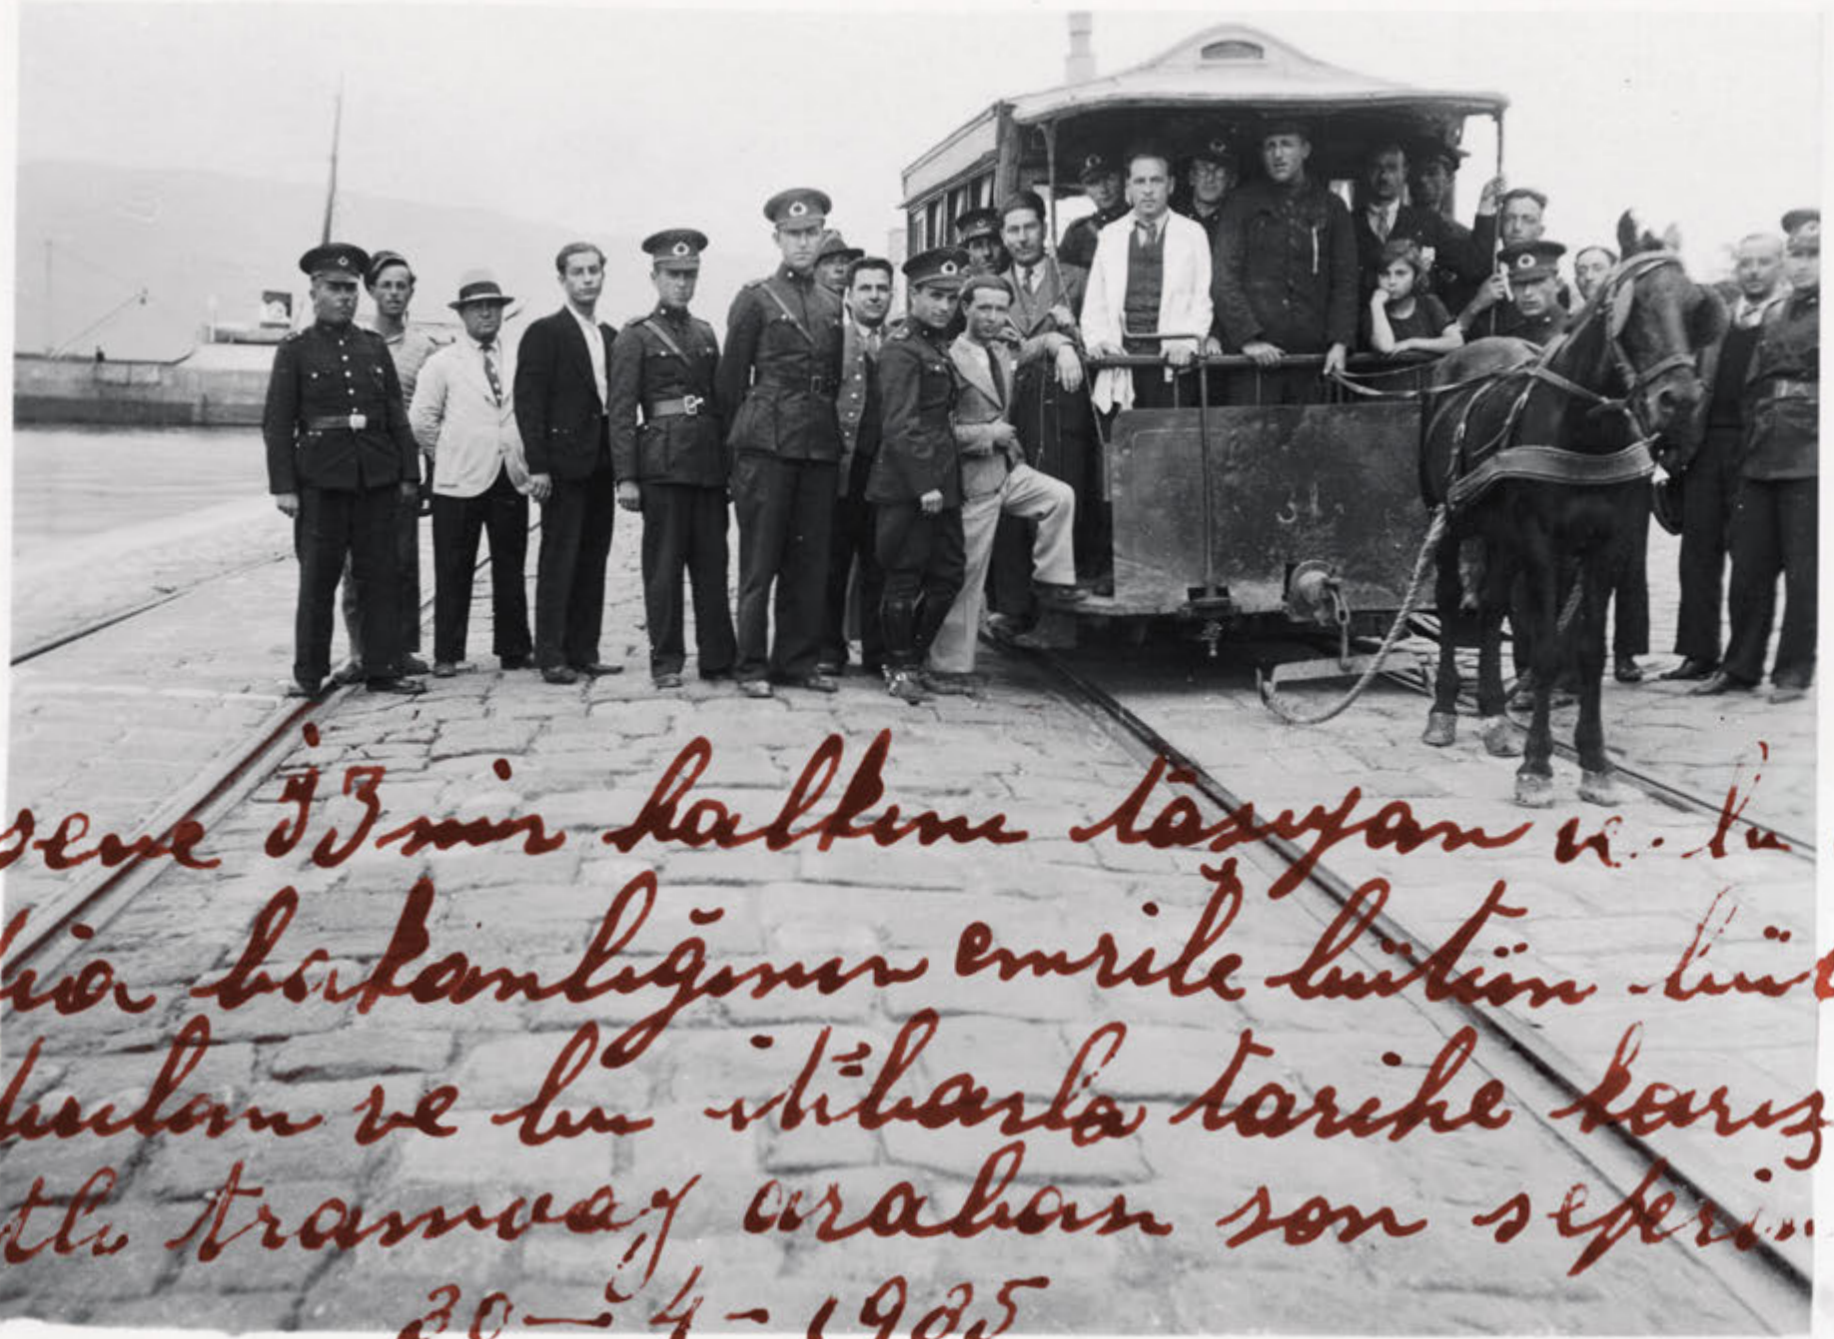 sene İzmir halkını taşıyan ve bu
bakanlığının emrile bütün
ve bu itibarla tarihe karış
tlı tramvay araban son seferin
30-4-1935